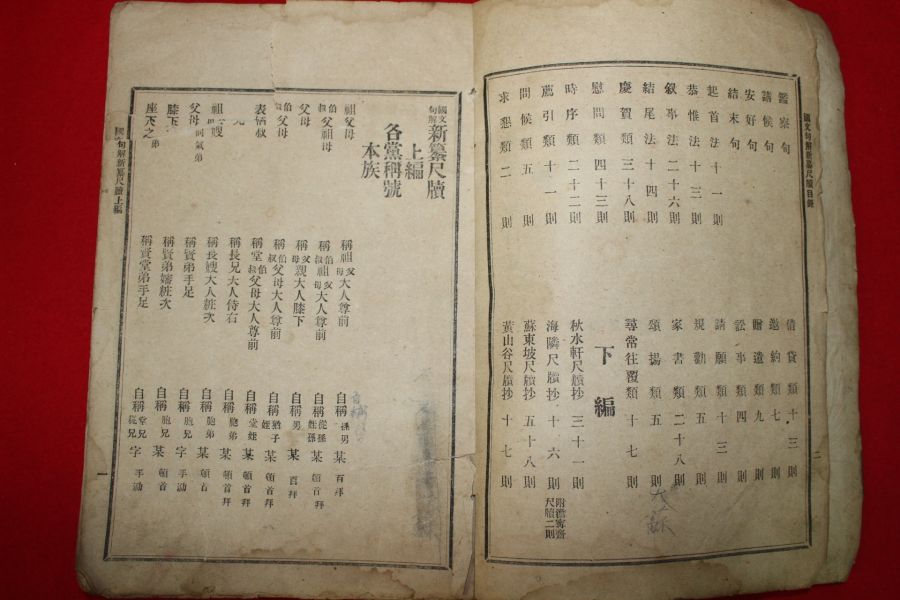 國文句解新纂尺牘目錄
二
鑑察句
請候句
安好句
結末句
起首法十一則
恭惟法十三則
叙事法二十六則
結尾法十四則
慶賀類三十八則
慰問類四十三則
時序類二十二則
薦引類十一則
問候類五則
求懇類二則
借貸類十三則
邀約類七則
贈遺類九則
訟事類四則
請願類十三則
規勸類五則
家書類二十八則
頌揚類五則
尋常往覆類十七則
下編
秋水軒尺牘抄三十一則
海隣尺牘抄十六則 附澹寧齋尺牘二則
蘇東坡尺牘抄五十八則
黃山谷尺牘抄十七則
國文句解新纂尺牘
上編
各黨稱號
本族
祖父母 稱祖父母大人尊前 自稱孫男某百拜
伯叔父祖母 稱伯叔祖父母大人尊前 自稱從孫姪孫某頓首拜
父母 稱父母親大人膝下 自稱男某百拜
伯叔父母 稱伯叔父母大人尊前 自稱猶子姪某頓首拜
稱堂伯叔父母大人尊前 自稱堂姪某頓首拜
兄 稱長兄大人侍右 自稱胞弟某頓首拜
嫂 稱長嫂大人粧次 自稱胞弟某頓首
父母同氣弟 稱賢弟手足 自稱胞兄字手泐
膝下 稱賢弟嬸粧次 自稱胞兄某頓首
座下之弟 稱賢堂弟手足 自稱堂兄從兄字手泐
國文句解新纂尺牘上編
一